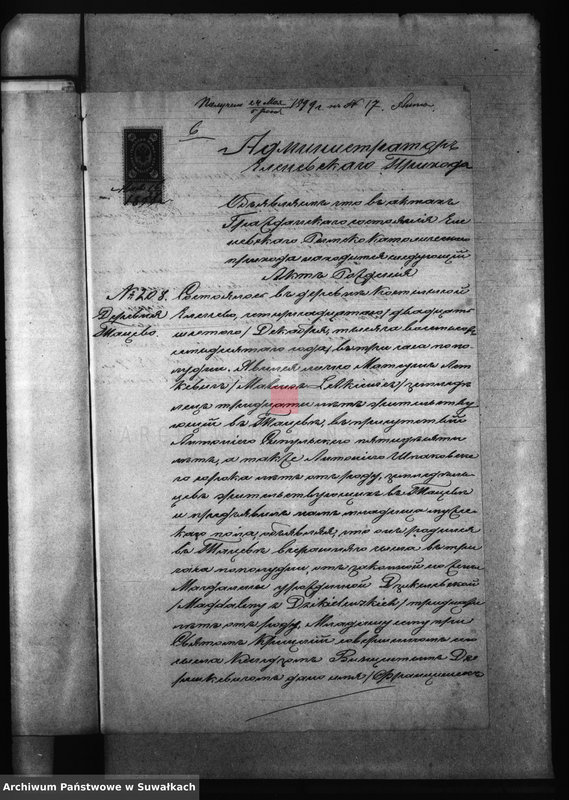 1899 г. № 17.
Администраторъ
Еленевскаго Прихода
Объявляетъ что въ актахъ
Гражданскаго состоянія Еле
невскаго Римско католическаго
прихода находится слѣдующій
Актъ Рожденія
№ 208.
Деревня
Тацево.
Состоялось въ деревнѣ Костельной
Еленево, четырнадцатаго / двадцать
шестого / Декабря, тысяча восемьсотъ
года, въ три часа попо
лудни. Явился лично Матеушъ Лет
кевичъ / Mateusz Letkiewicz / земледѣ
лецъ тридцати лѣтъ жительству
ющій въ Тацевѣ, въ присутствіи
Антонія пятидесяти
лѣтъ, а также Антонія Шпаковска
го сорока лѣтъ отъ роду, земледѣль
цевъ жительствующихъ въ Тацевѣ
и предъявилъ намъ младенца мужес
каго пола, объявляя, что онъ родился
въ Тацевѣ вчерашняго числа въ три
часа пополудни, отъ законной его жены
Магдалены урожденной Дзикелевской
/ Magdaleny z Dzikielewskich / тридцати
лѣтъ отъ роду. Младенцу этому при
Святомъ Крещеніи совершенномъ сего
числа Ксендзомъ Викентіемъ
дано имя / Францишекъ
Archiwum Państwowe w Suwałkach